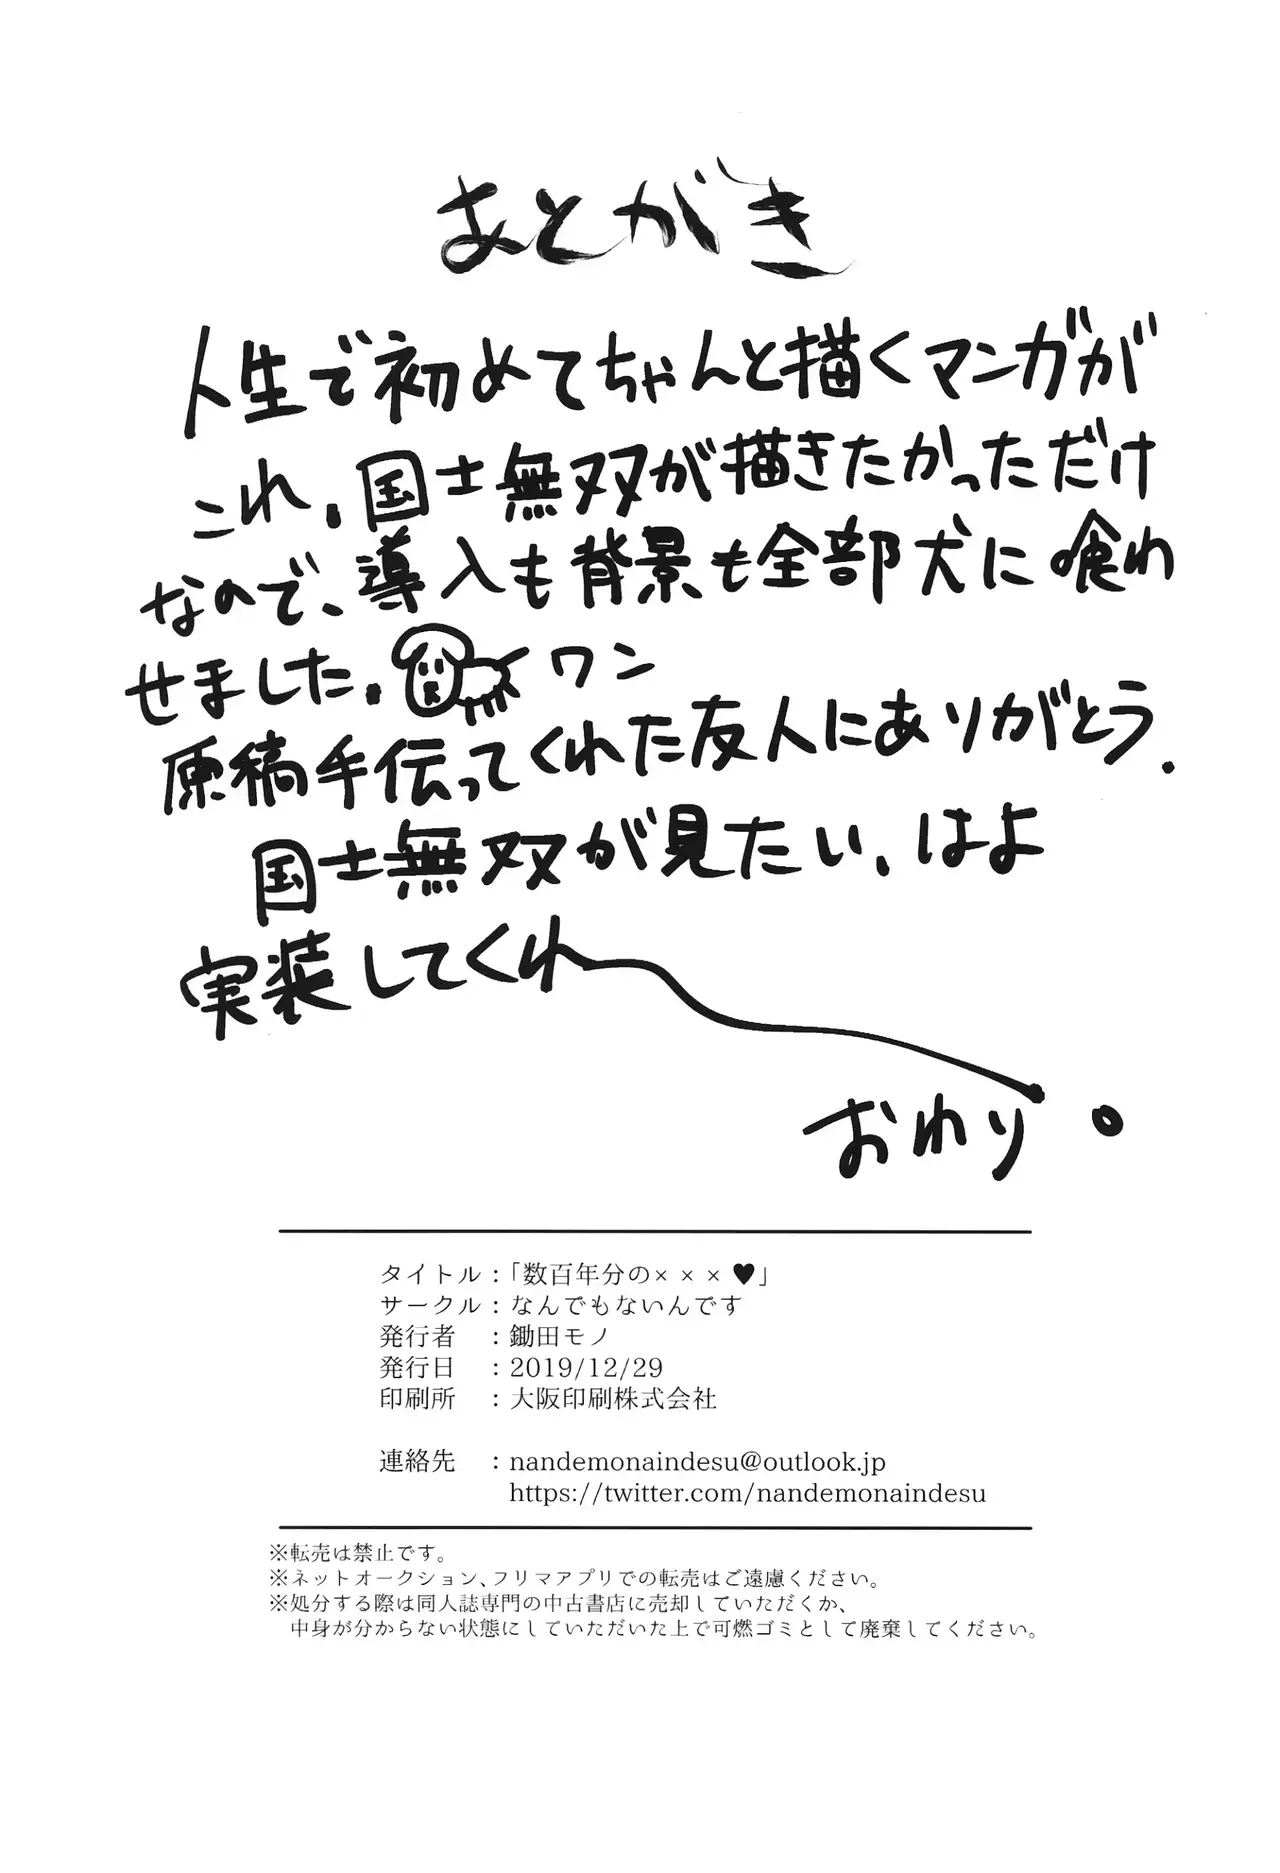 あとがき
人生で初めてちゃんと描くマンガが
これ。国士無双が描きたかっただけ
なので、導入も背景も全部犬に喰わ
せました。ワン
原稿手伝ってくれた友人にありがとう。
国士無双が見たい。はよ
実装してくれ
おわり。
タイトル：「数百年分の×××♥」
サークル：なんでもないんです
発行者　：鋤田モノ
発行日　：2019/12/29
印刷所　：大阪印刷株式会社
連絡先　：nandemonaindesu@outlook.jp
https://twitter.com/nandemonaindesu
※転売は禁止です。
※ネットオークション、フリマアプリでの転売はご遠慮ください。
※処分する際は同人誌専門の中古書店に売却していただくか、
中身が分からない状態にしていただいた上で可燃ゴミとして廃棄してください。